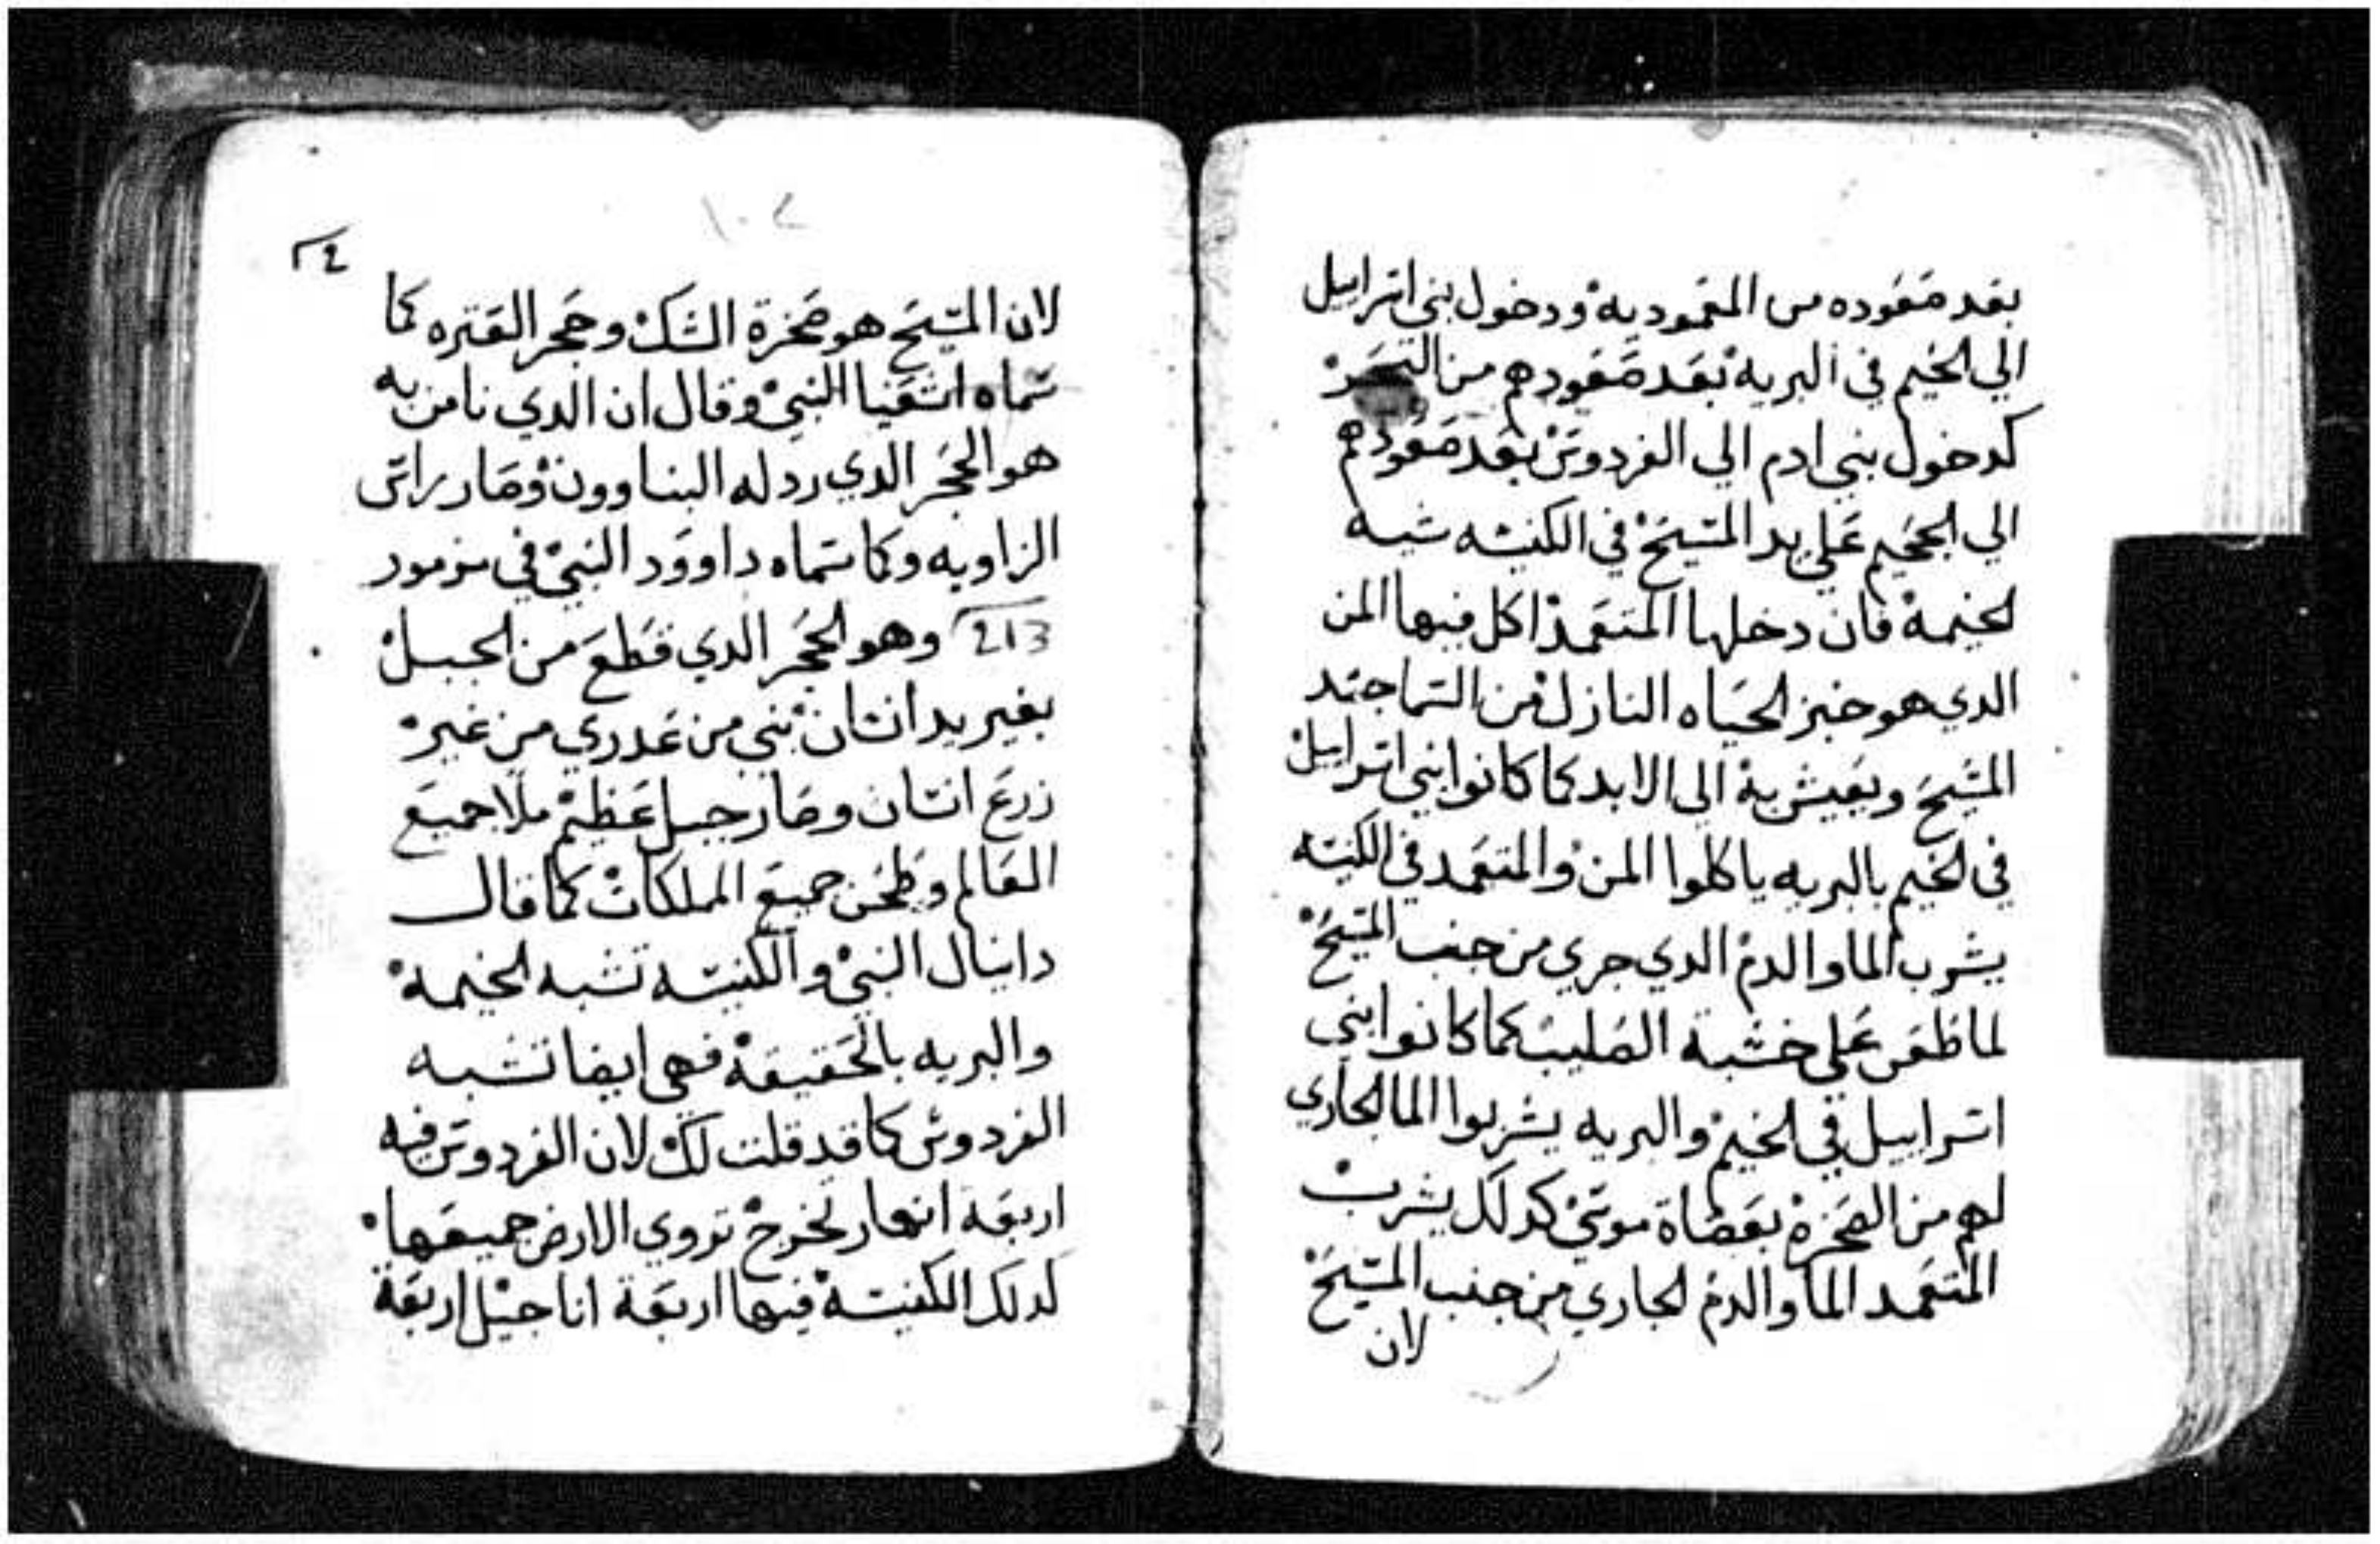 بعد صعوده من المعموديه ودخول بني اسراييل
الي الخيم في البريه بعد صعودهم من البحر
كدخول بني ادم الي الفردوس بعد صعودهم
الي الجحيم علي يد المسيح في الكنيسه شبه
الخيمة فان دخلها المتعمد اكل فيها المن
الدي هو خبز الحياه النازل من السما جسد
المسيح ويعيش به الي الابد كما كانوا بني اسراييل
في الخيم بالبريه ياكلوا المن والمتعمد في الكنيسه
يشرب الما والدم الدي جري من جنب المسيح
لما طعن علي خشبة الصليب كما كانوا بني
اسراييل في الخيم والبريه يشربوا الما الجاري
لهم من الصخرة بعصاة موسي كدلك يشرب
المتعمد الما والدم الجاري من جنب المسيح
لان
١٠٢
لان المسيح هو صخرة الشك وحجر العتره كما
سماه اشعيا النبي وقال ان الدي نامن به
هو الحجر الدي ردله البناوون وصار راس
الزاويه وكما سماه داوود النبي في مزمور
وهو الحجر الدي قطع من الجبل
بغير يد انسان بني من عدري من غير
زرع انسان وصار جبل عظيم ملا جميع
العالم وطحن جميع الملكات كما قال
دانيال النبي والكنيسه تشبه الخيمة
والبريه بالحقيقة فهي ايضا تشبه
الفردوس كما قد قلت لك لان الفردوس فيه
اربعة انهار تخرج تروي الارض جميعها
لدلك الكنيسة فيها اربعة اناجيل اربعة